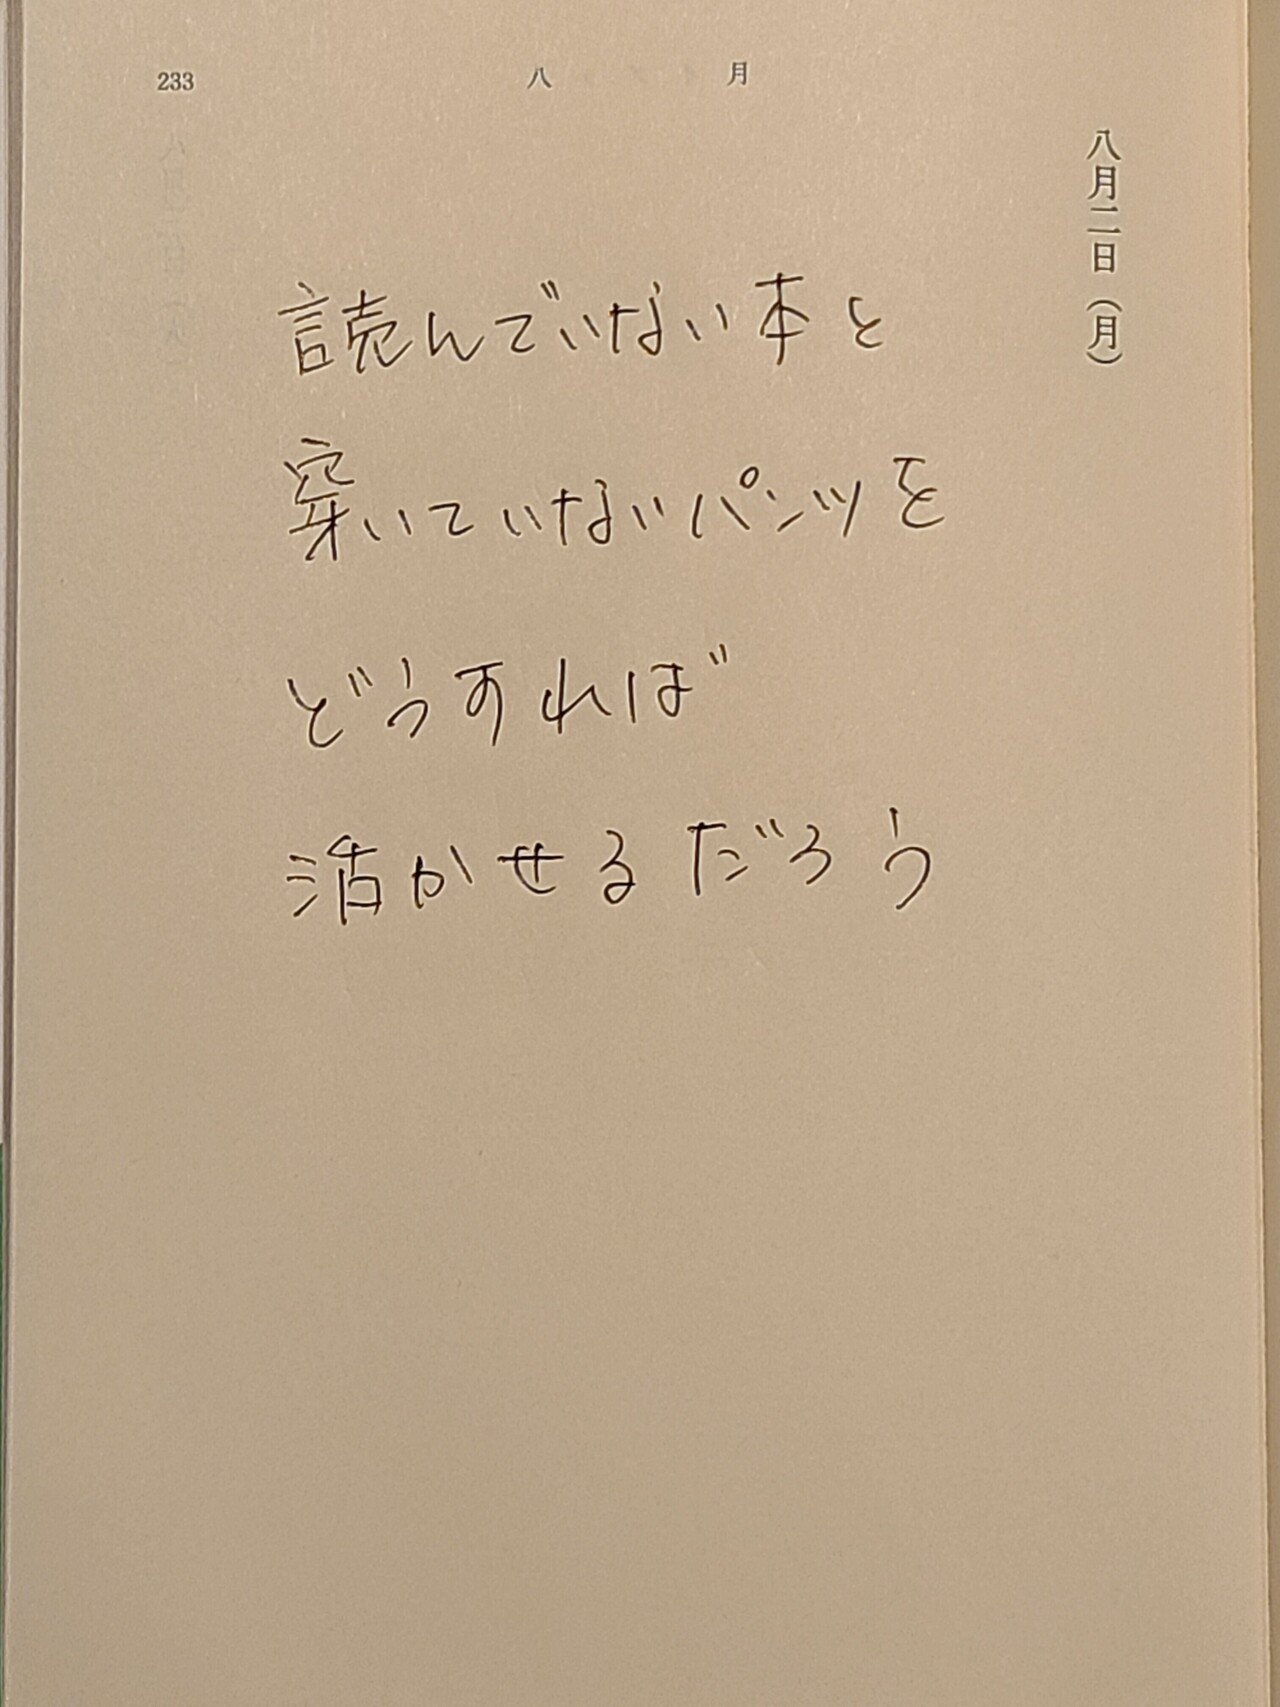 233
八月
八月二日(月)
読んでいない本と
穿いていないパンツを
どうすれば
活かせるだろう